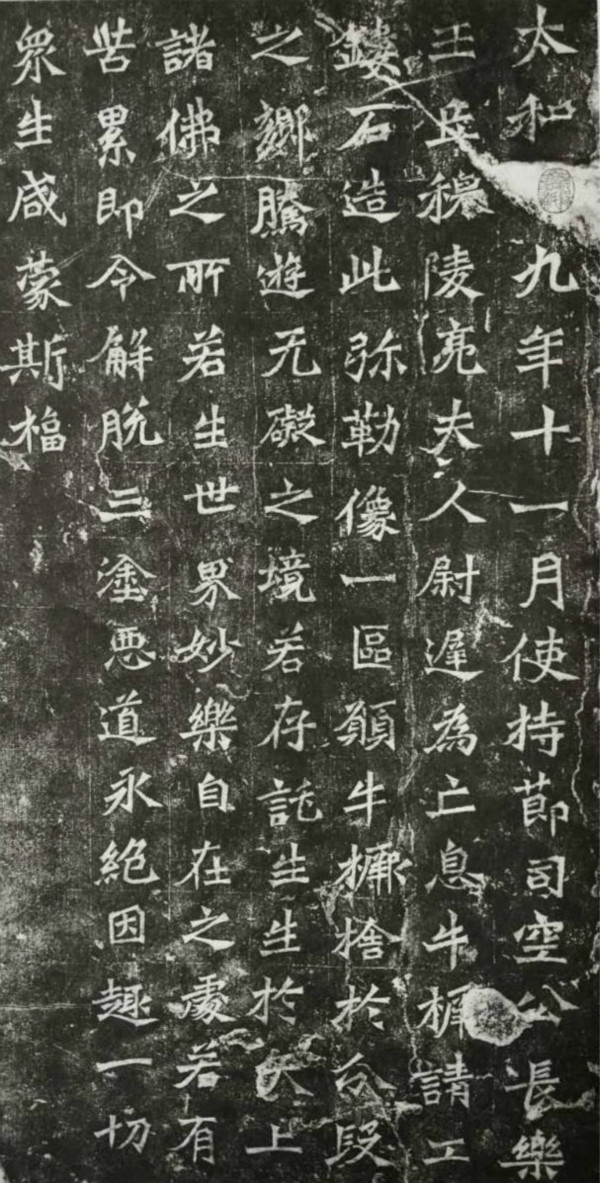 太和十九年十一月使持節司空公長樂
王丘穆陵亮夫人尉遲為亡息牛橛請工
鏤石造此弥勒像一區願牛橛捨於分段
之鄉騰遊无礙之境若存託生生於天上
諸佛之所若生世界妙樂自在之處若有
苦累即令解脱三塗惡道永絕因趣一切
眾生咸蒙斯福